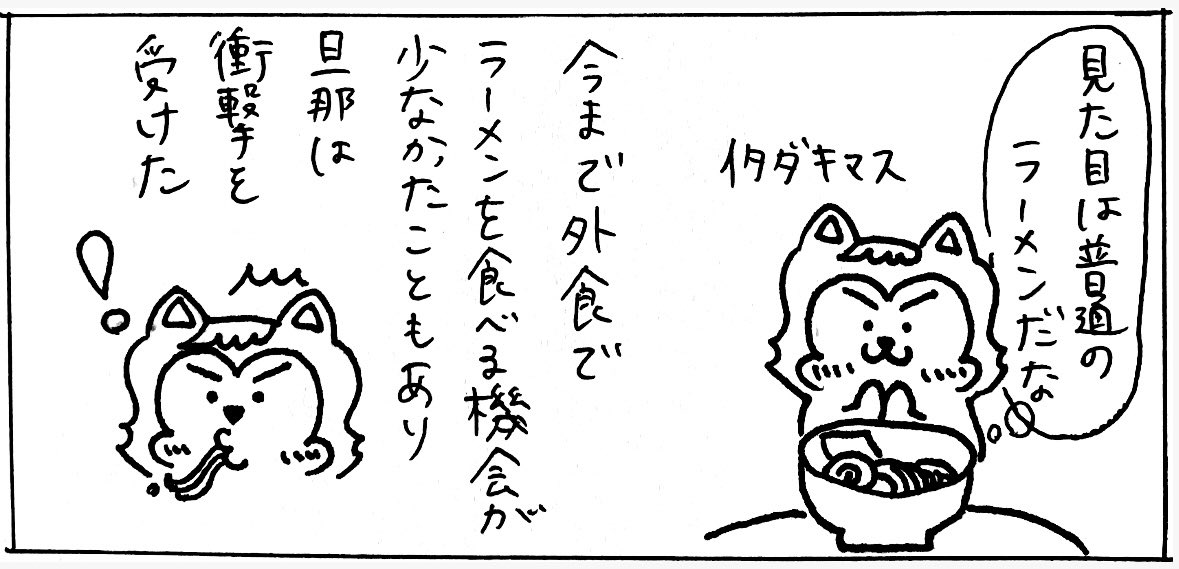 見た目は普通の
ラーメンだな
イタダキマス
今まで外食で
ラーメンを食べる機会が
少なかったこともあり
旦那は
衝撃を
受けた